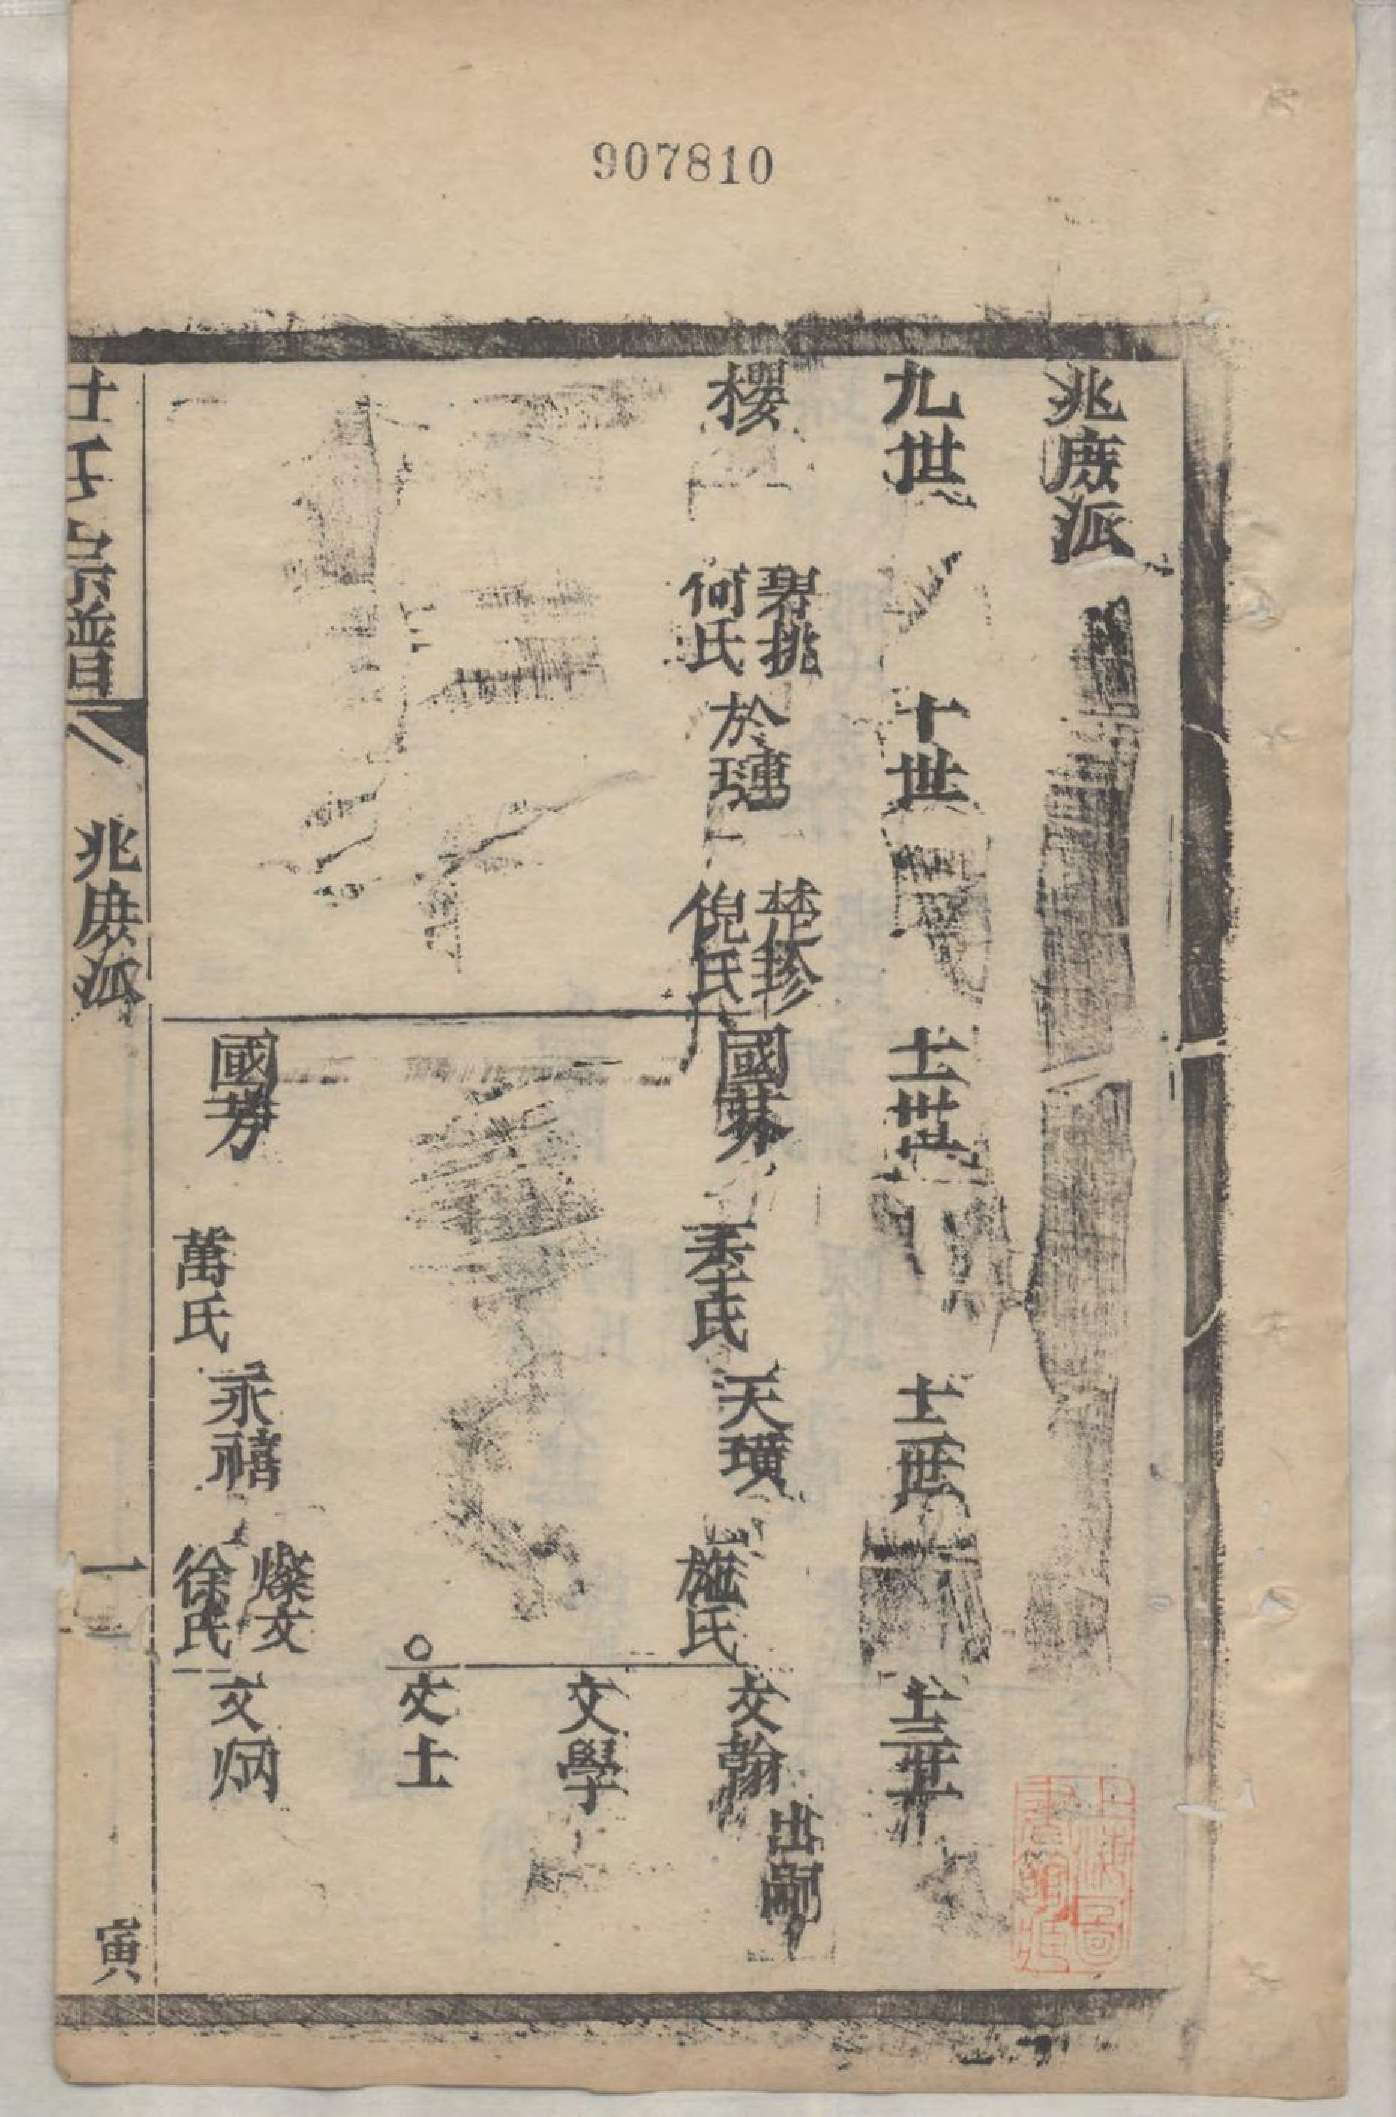 907810
兆庹派
九世
十世
十一世
十二世
十三世
櫻
碧挑
何氏
於璉
楚珍
倪氏
國棻
氏
天璜
施氏
文翰
出嗣
文學
文士
國芳
萬氏
永禧
燦文
徐氏
文炳
氏宗譜
兆庹派
一
寅
上海圖書館藏